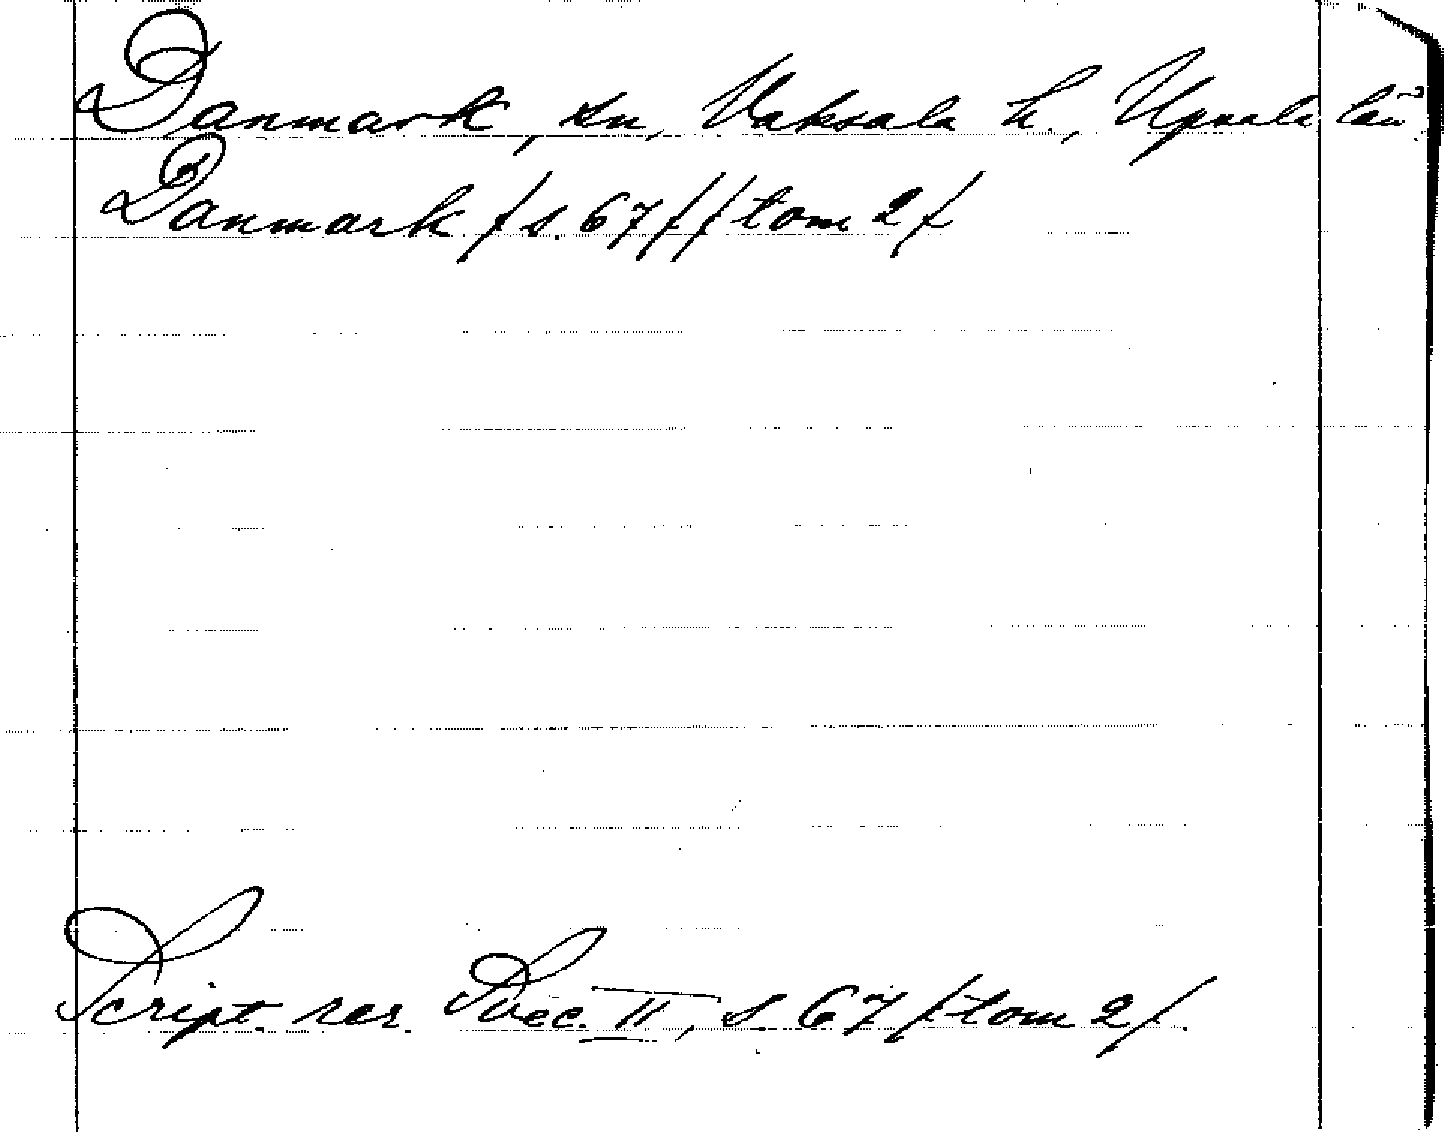 Danmark, sn, Vaksala h., Upsala län
Danmark /s. 67/ /tom 2/
Script. rer. Svec. II, s. 67 /tom 2/.